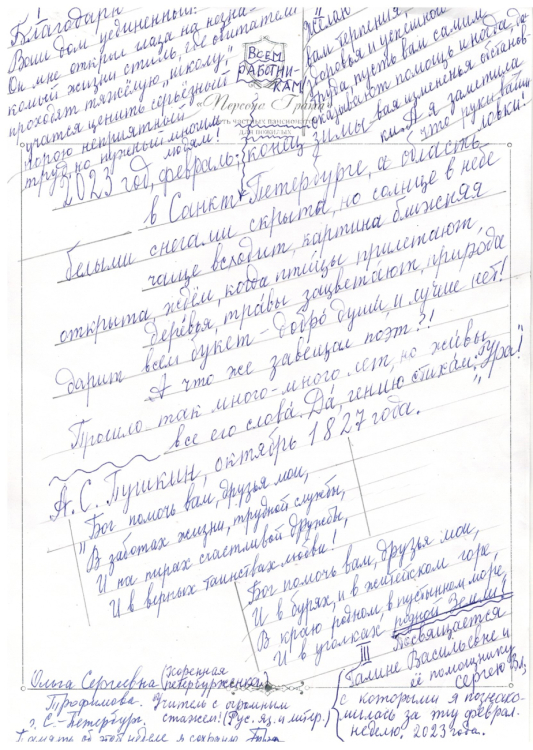 Благодарю!
Ваш дом уединенный!
Он мне открыл глаза на нашей
жизни стиль, где обитатели
проходят тяжёлую „школу",
учатся ценить серьёзный
порою неприятный
труд, но нужный многим
людям!
ВСЕМ
РАБОТНИ-
КАМ
«Персона Грата»
сеть частных пансионатов
для пожилых
вам терпения,
здоровья и успешного
труда, пусть вам самим
оказывают помощь иногда, да-
вая измененья обстанов-
ки. А я заметила
что руки ваши
ловки!
2023 год, февраль: конец зимы
в Санкт-Петербурге, а область
белыми снегами скрыта, но солнце в небе
чаще всходит, картина ближняя
открыта, ждём, когда птицы прилетают,
деревья, травы зацветают, природа
дарит всем букет – добро души, и лучше нет!
А что же завещал поэт?!
Прошло так много-много лет, но живы
все его слова. Да, гению стихам: „Ура!"
А.С. Пушкин, октябрь 1827 года.
„Бог помочь вам, друзья мои,
В заботах жизни, трудной службы,
И на пирах счастливой дружбы,
И в верных таинствах любви!
Бог помочь вам, друзья мои,
И в бурях, и в житейском горе,
В краю родном, в пустынном море,
И в уголках родной Земли!"
III
Посвящается
Галине Васильевне и
её помощнику
Сергею Вл,
с которыми я познако-
милась за эту феврал.
неделю, 2023 года.
Ольга Сергеевна (коренная
петербурженка)
Трофимова. Учитель с огромным
г. С.-Петербург. стажем! (Рус. яз. и литер.)
Память об этой неделе я сохраню